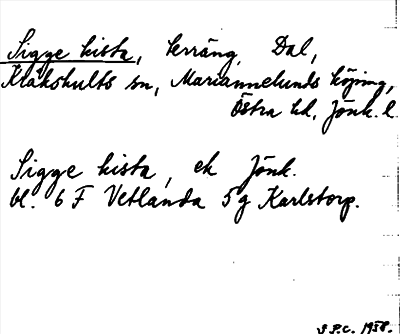 Sigge kista, terräng, Dal,
Kråkshults sn, Mariannelunds köping,
Östra hd, Jönk. l.
Sigge kista, ek Jönk.
bl. 6 F Vetlanda 5g Karlstorp.
S.P.C. 1958.